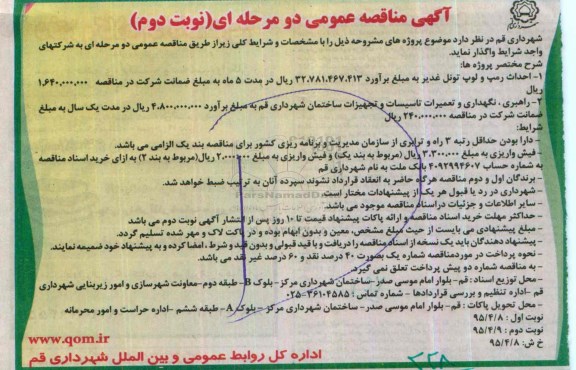 آگهی مناقصه عمومی دو مرحله ای(نوبت دوم)
شهرداری قم در نظر دارد موضوع پروژه های مشروحه ذیل را با مشخصات و شرایط کلی زیراز طریق مناقصه عمومی دو مرحله ای به شرکتهای
واجد شرایط واگذار نماید.
شرح مختصر پروژه ها:
۱- احداث رمپ و لوپ تونل غدیر به مبلغ برآورد ۳۲.۷۸۱.۴۶۷.۴۱۳ ریال در مدت ۵ ماه به مبلغ ضمانت شرکت در مناقصه ۱,۶۴۰,۰۰۰,۰۰۰
۲- راهبری ، نگهداری و تعمیرات تاسیسات و تجهیزات ساختمان شهرداری قم به مبلغ برآورد ۴.۸۰۰.۰۰۰.۰۰۰ ریال در مدت یک سال به مبلغ
ضمانت شرکت در مناقصه ۲۴۰.۰۰۰.۰۰۰ ریال
شرایط:
- دارا بودن حداقل رتبه ۳ راه و ترابری از سازمان مدیریت و برنامه ریزی کشور برای مناقصه بند یک الزامی می باشد.
- فیش واریزی به مبلغ ۳.۳۰۰.۰۰۰ ریال (مربوط به بند یک) و فیش واریزی به مبلغ ۲.۰۰۰.۰۰۰ ریال(مربوط به بند ۲) به ازای خرید اسناد مناقصه
به شماره حساب ۴۰۹۲۹۹۴۶۰۷ بانک ملت به نام شهرداری قم
- برندگان اول و دوم مناقصه هرگاه حاضر به انعقاد قرارداد نشوند سپرده آنان به ترتیب ضبط خواهد شد.
- شهرداری در رد یا قبول هر یک از پیشنهادات مختار است.
- سایر اطلاعات و جزئیات در اسناد مناقصه موجود می باشد.
- حداکثر مهلت خرید اسناد مناقصه و ارائه پاکات پیشنهاد قیمت تا ۱۰ روز پس از انتشار آگهی نوبت دوم می باشد
- مبلغ پیشنهادی می بایست از حیث مبلغ مشخص، معین و بدون ابهام بوده و در پاکت لاک و مهر شده تسلیم گردد.
- پیشنهاد دهندگان باید یک نسخه از اسناد مناقصه را دریافت و با قید قبولی و بدون قید و شرط ، امضا کرده و به پیشنهاد خود ضمیمه نمایند.
- نحوه پرداخت در موردمناقصه شماره یک بصورت ۴۰ درصد نقد و ۶۰ درصد غیر نقد می باشد.
- به مناقصه شماره دو پیش پرداخت تعلق نمی گیرد.
- محل توزیع اسناد : قم- بلوار امام موسی صدر-ساختمان شهرداری مرکز- بلوک B- طبقه دوم-معاونت شهرسازی و امور زیربنایی شهرداری
قم -اداره تنظیم و بررسی قراردادها - شماره تماس : ۳۶۱۰۴۵۸۵-۰۲۵
- محل تحویل پاکات: قم- بلوار امام موسی صدر- ساختمان شهرداری مرکز - بلوک A- طبقه ششم -اداره حراست و امور محرمانه
نوبت اول : ۹۵/۴/۸
نوبت دوم : ۹۵/۴/۹
خ ش: ۹۵/۴/۸
www.qom.ir
اداره کل روابط عمومی و بین الملل شهرداری قم